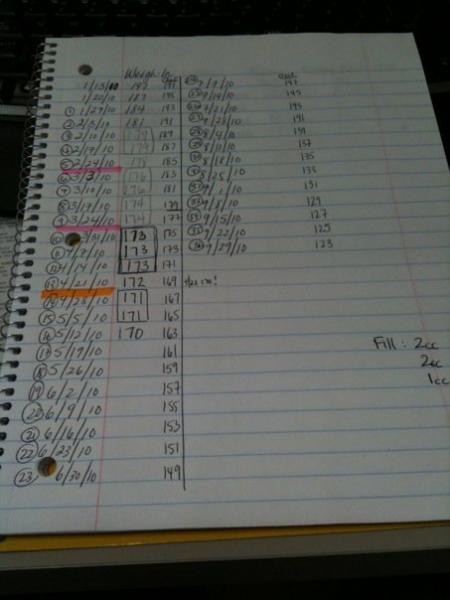 Weigh-In Goal Goal
1/13/10 192 197 7/7/10 147
1/20/10 187 195 7/14/10 145
① 1/27/10 184 193 7/21/10 143
② 2/3/10 181 191 7/28/10 141
③ 2/10/10 179 189 8/4/10 139
④ 2/17/10 179 187 8/11/10 137
⑤ 2/24/10 178 185 8/18/10 135
⑥ 3/3/10 176 183 8/25/10 133
⑦ 3/10/10 176 181 9/1/10 131
⑧ 3/17/10 174 179 9/8/10 129
⑨ 3/24/10 174 177 9/15/10 127
⑩ 3/31/10 173 175 9/22/10 125
⑪ 4/7/10 173 173 9/29/10 123
⑫ 4/14/10 173 171
⑬ 4/21/10 172 169
⑭ 4/28/10 171 167
⑮ 5/5/10 171 165
⑯ 5/12/10 170 163
⑰ 5/19/10 161
⑱ 5/26/10 159
⑲ 6/2/10 157
⑳ 6/9/10 155
㉑ 6/16/10 153
㉒ 6/23/10 151
㉓ 6/30/10 149
Fill: 2cc
2cc
1cc